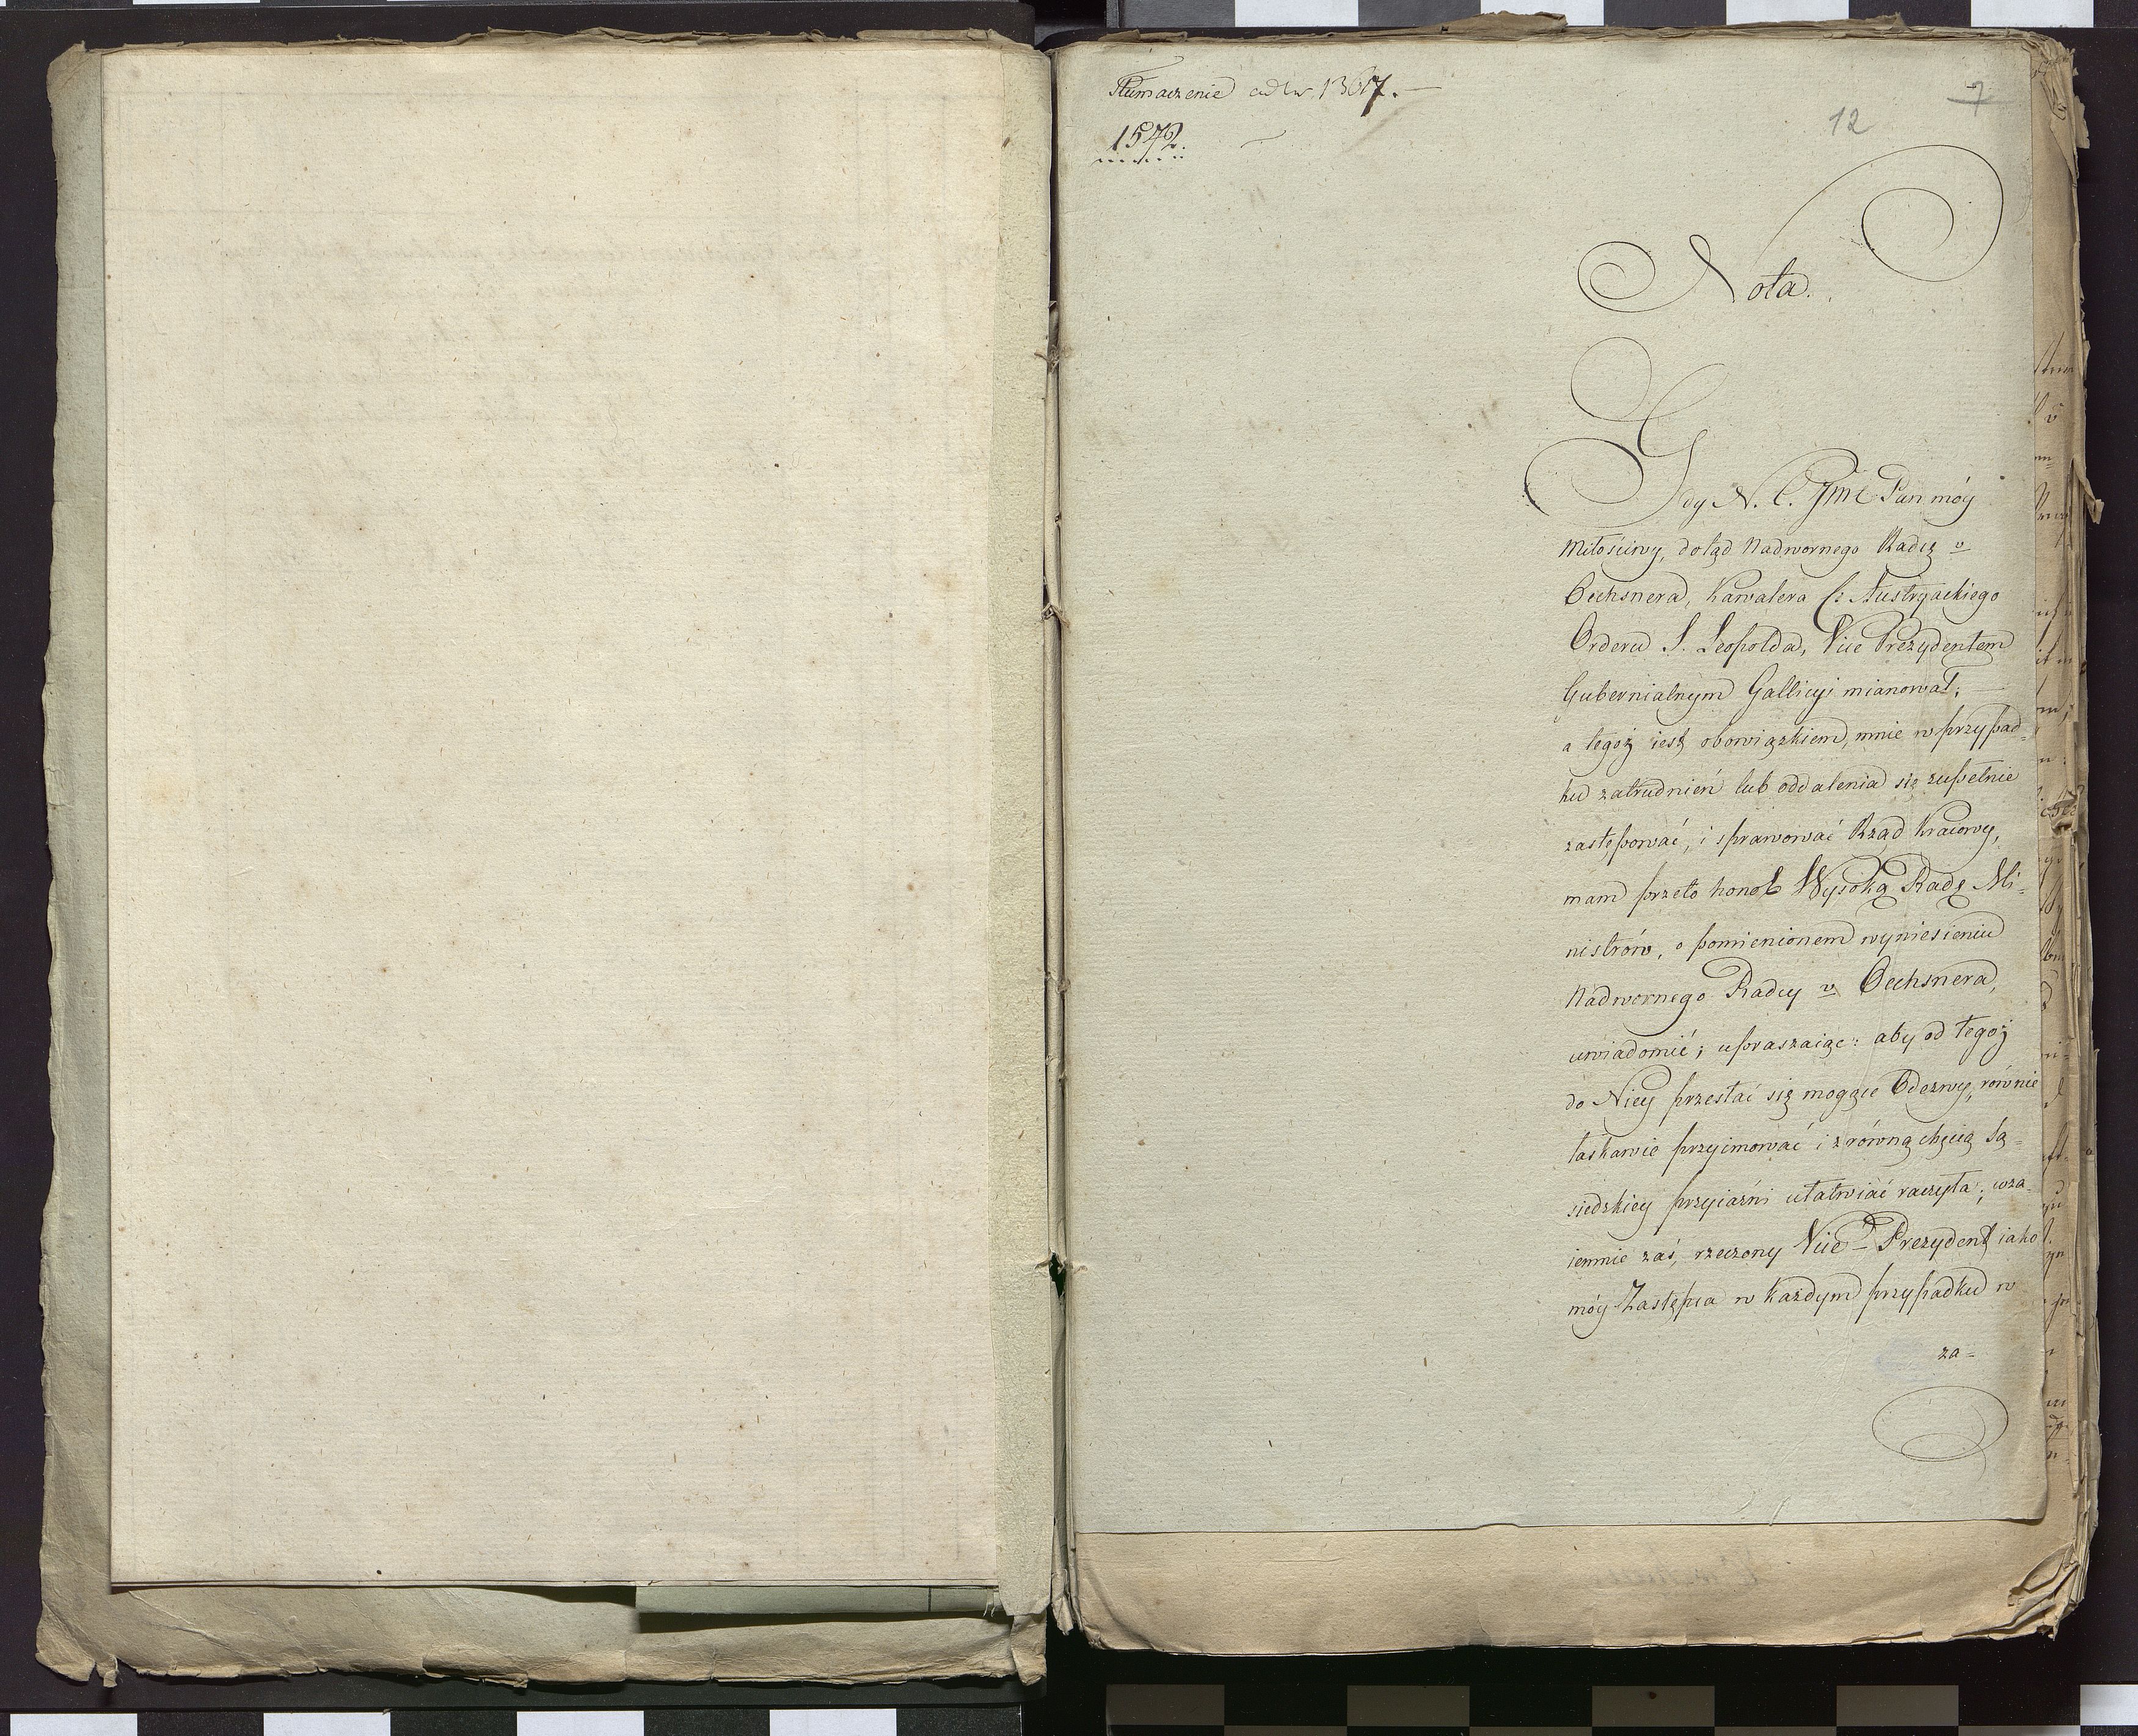 Tłumaczenie ad Nr. 1367. —
1542.
12
7
Nota.
Gdy N. C. Jmć Pan móy
Miłościwy, dotąd Nadwornego Radcę v
Oechsnera, Kawalera C: Austryackiego
Orderu S. Leopolda, Vice Prezydentem
Gubernialnym Gallicyi mianował; —
a tegoż iest obowiązkiem, mnie w przypad=
ku zatrudnień lub oddalenia się zupełnie
zastępować, i sprawować Rząd Kraiowy,
mam przeto honor Wysoką Radę Mi=
nistrów, o pomienionem wyniesieniu
Nadwornego Radcy v Oechsnera,
uwiadomić; upraszaiąc: aby od tegoż
do Niey przesłać się mogące Odezwy, równie
łaskawie przyimować i z równą chęcią Są=
siedzkiey przyiaźni ułatwiać raczyła; wza=
iemnie zaś, rzeczony Vice-Prezydent iako
móy Zastępca w każdym przypadku w
za=